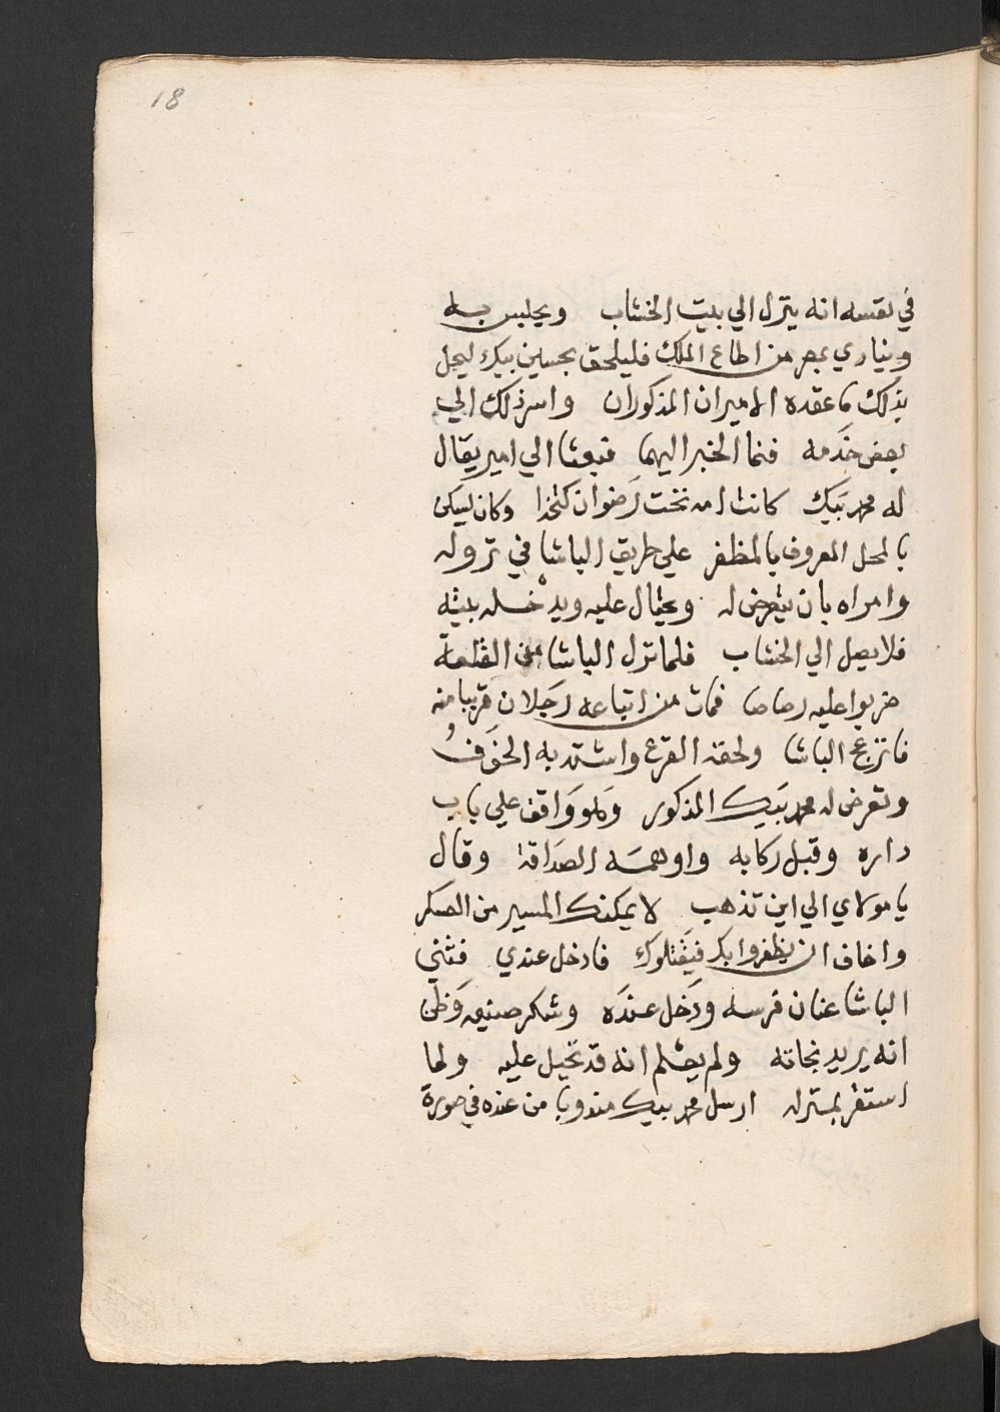 18
في نفسه انه ينزل الي بيت الخشاب ويجلس به
وينادي بمصر من اطاع الملك فليلحق بحسين بيك ليحل
بذلك ما عقده الاميران المذكوران واسر ذلك الي
بعض خدمه فنما الخبر اليهما فبعثا الي امير يقال
له محمد بَيك كانت امه تخت رَضوان كتخدا وكان يسكن
بالمحل المعروف بالمظفر علي طريق الباشا في نزوله
وامراه بان يتعرض له ويحتال عليه ويدخله بيته
فلا يصل الي الخشاب فلما نزل الباشا من القلعة
ضربوا عليه رصاصا فمات من اتباعه رَجلان قريبا منه
فانزعج الباشا ولحقه الفزع واشتد به الخَوفُ
وتعرض له محمد بَيك المذكور وَهو وَاقف علي باب
داره وقبل ركابه واوهمَه الصدَاقة وقال
يا مولاي الي اين تذهب لا يمكنك المسير من العسكر
واخاف ان يظفروا بك فيَقتلوك فادخل عندي فثني
الباشا عنان فرسه ودَخل عندَه وشكر صنيعه وَظن
انه يريد نجاته ولم يعلم انه قد تحيل عليه ولما
استقر بمنزله ارسل محمد بيك مندوبا من عنده في صورة